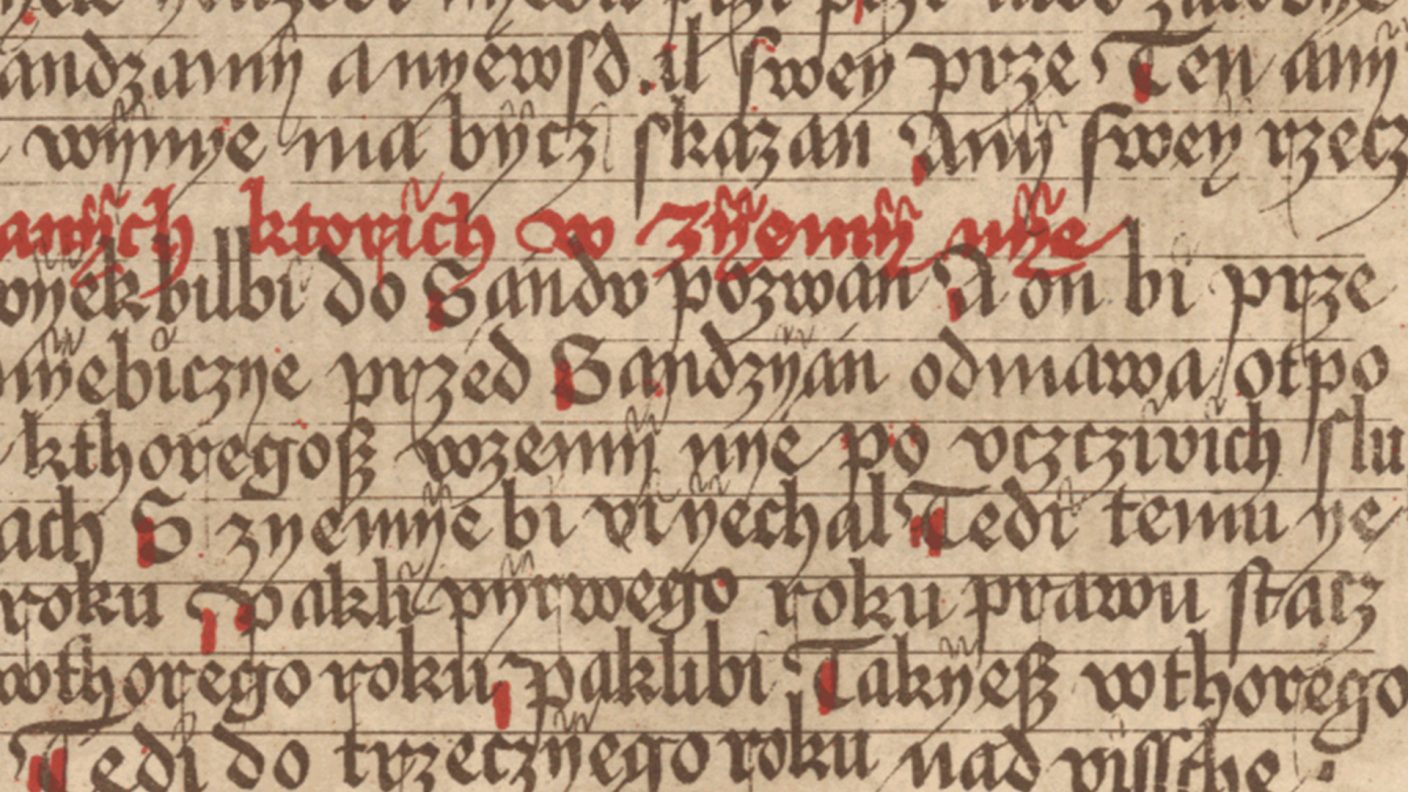 andzamy a nyewsd il swey prze Ten any
wÿmye ma bÿcz skazan Anÿ swey rzecz
anÿch ktorich w Zÿemÿ nÿe
wyek bilbi do Sandv pozwan A on bi prze
nÿebiczye przed Sandzÿan odmawa otpo
kthoregosz wzemÿ nye po vczcziwich slu
ach S zyemÿe bi viyechal Tedi temu ye
roku Pakli pÿrwego roku prawu stacz
wthorego roku paklibi Takÿesz wthorego
Tedi do trzeczÿego roku nad vissche